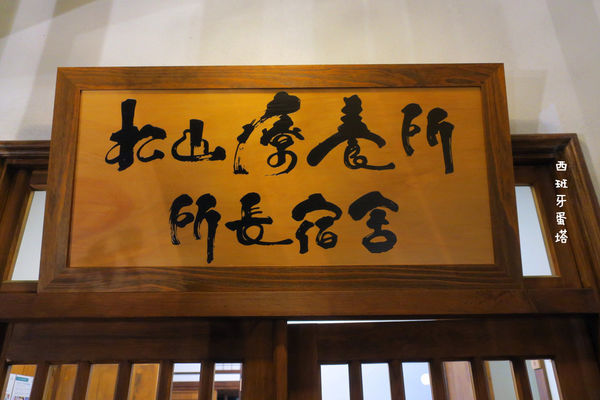 松山療養所
所長宿舍
西班牙蛋塔